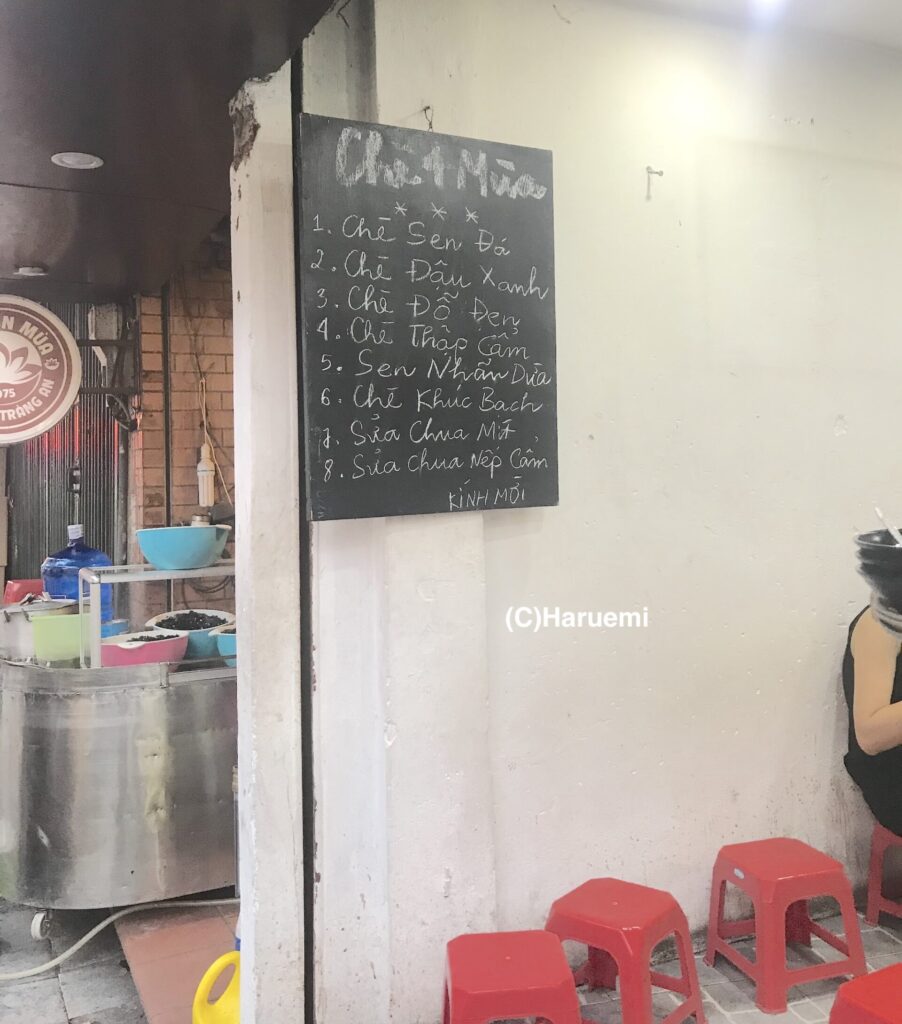 N MÙA
975
TRÀNG AN
Chè 4 Mùa
* * *
1. Chè Sen Đá
2. Chè Đậu Xanh
3. Chè Đỗ Đen
4. Chè Thập Cẩm
5. Sen Nhãn Dừa
6. Chè Khúc Bạch
7. Sữa Chua Mít
8. Sữa Chua Nếp Cẩm
KÍNH MỜI
(C)Haruemi